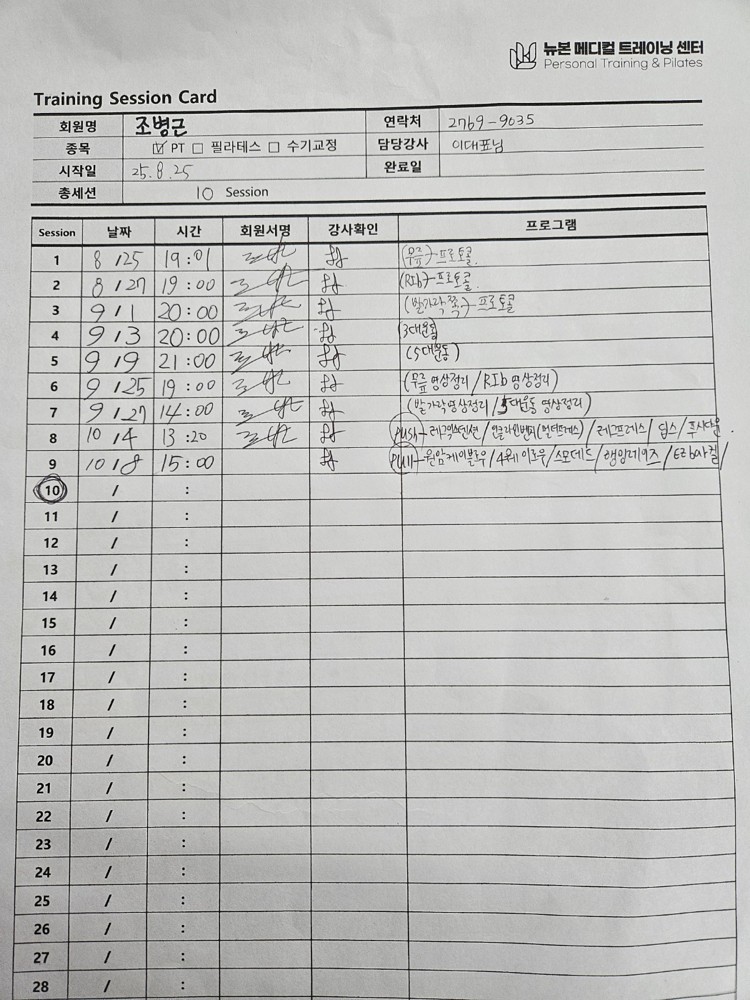 뉴본 메디컬 트레이닝 센터
Personal Training & Pilates
Training Session Card
회원명 조병근 연락처 2769-9035
종목 ☑ PT □ 필라테스 □ 수기교정 담당강사 이대표님
시작일 25.8.25 완료일
총세션 10 Session
Session 날짜 시간 회원서명 강사확인 프로그램
1 8/25 19:01 (무릎)-프로토콜.
2 8/27 19:00 (RIb)-프로토콜.
3 9/1 20:00 (발가락쪽)-프로토콜
4 9/3 20:00 (3대운동)
5 9/9 21:00 (5대운동)
6 9/25 19:00 (무릎영상정리/RIb영상정리)
7 9/27 14:00 (발가락영상정리/5대운동 영상정리)
8 10/4 13:20 push-레그익스텐션/인클라인벤치/레그프레스/딥스/푸시다운.
9 10/8 15:00 pull-원암케이블로우/4웨이로우/스모데드/행잉레이즈/EZbar컬/
10 / :
11 / :
12 / :
13 / :
14 / :
15 / :
16 / :
17 / :
18 / :
19 / :
20 / :
21 / :
22 / :
23 / :
24 / :
25 / :
26 / :
27 / :
28 / :